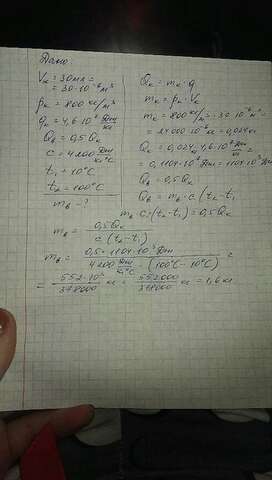 Дано
Vк = 30мл =
= 30·10⁻⁶ м³
ρк = 800 кг/м³
qк = 4,6·10⁷ Дж/кг
Qв = 0,5 Qк
c = 4200 Дж/кг°C
t₁ = 10°C
t₂ = 100°C
mв - ?
Qк = mк · q
mк = ρк · Vк
mк = 800 кг/м³ · 30·10⁻⁶ м³ =
= 24000·10⁻⁶ кг = 0,024 кг
Qк = 0,024 · 4,6·10⁷ Дж/кг =
= 0,1104·10⁷ Дж = 1104·10³ Дж
Qв = 0,5 Qк
Qв = mв · c (t₂ - t₁)
mв c · (t₂ - t₁) = 0,5 Qк
mв = 0,5 Qк / c (t₂ - t₁)
mв = 0,5 · 1104·10³ Дж / 4200 Дж/кг°C · (100°C - 10°C) =
= 552·10³ / 378000 кг = 552000 / 378000 кг = 1,6 кг